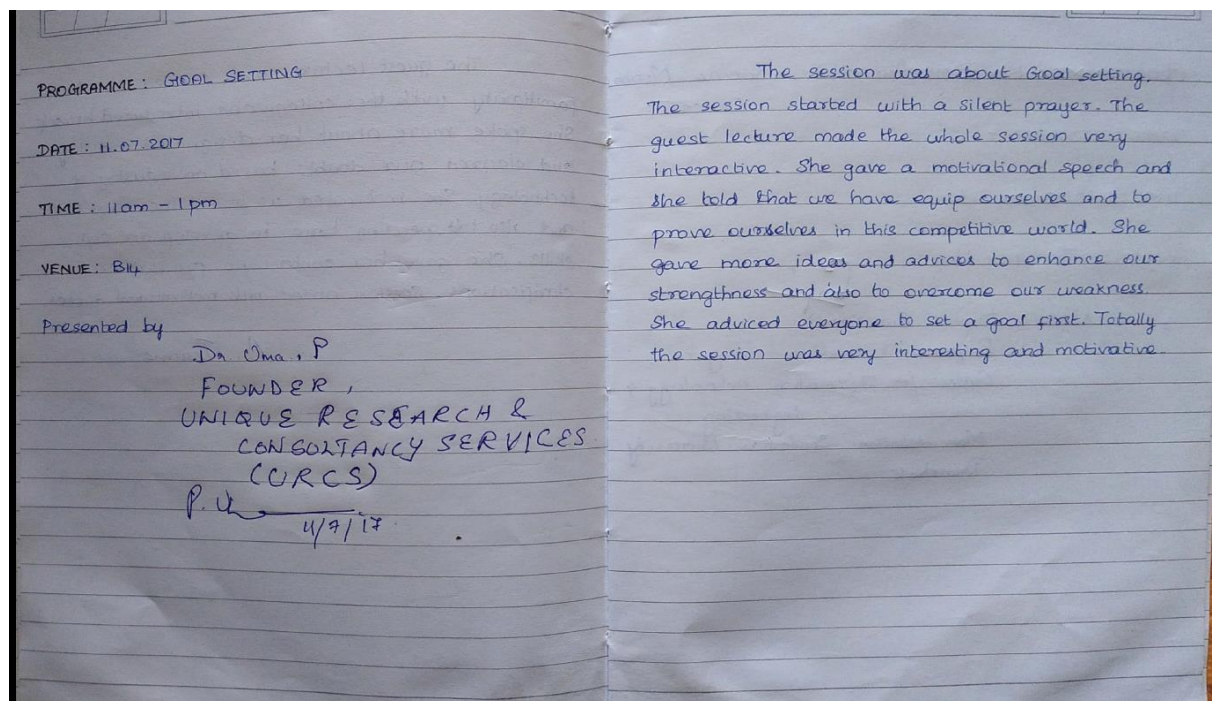 PROGRAMME: GOAL SETTING
DATE: 11.07.2017
TIME: 11am - 1pm
VENUE: B14
Presented by
Dr Uma. P
FOUNDER,
UNIQUE RESEARCH &
CONSULTANCY SERVICES
(URCS)
P. U
11/7/17
The session was about Goal setting.
The session started with a silent prayer. The
guest lecture made the whole session very
interactive. She gave a motivational speech and
she told that we have equip ourselves and to
prove ourselves in this competitive world. She
gave more ideas and advices to enhance our
strengthness and also to overcome our weakness.
She adviced everyone to set a goal first. Totally
the session was very interesting and motivative.